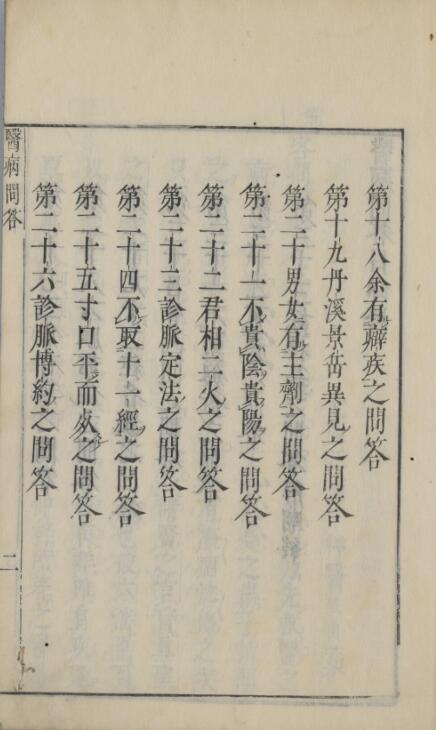 第十八余有癖疾之問答
第十九丹溪景岳異見之問答
第二十男女有主劑之問答
第二十一不貴陰貴陽之問答
第二十二君相二火之問答
第二十三診脈定法之問答
第二十四不取十一經之問答
第二十五寸口平而死之問答
第二十六診脈博約之問答
醫病問答
二